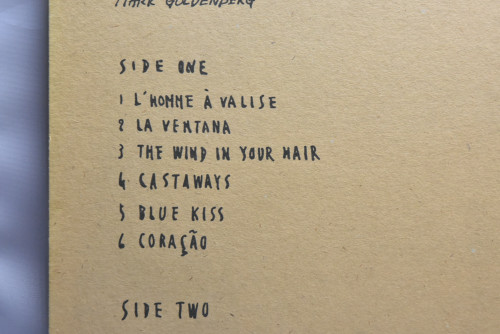 MARK GOLDENBERG
SIDE ONE
1 L'HOMME À VALISE
2 LA VENTANA
3 THE WIND IN YOUR HAIR
4 CASTAWAYS
5 BLUE KISS
6 CORAÇÃO
SIDE TWO